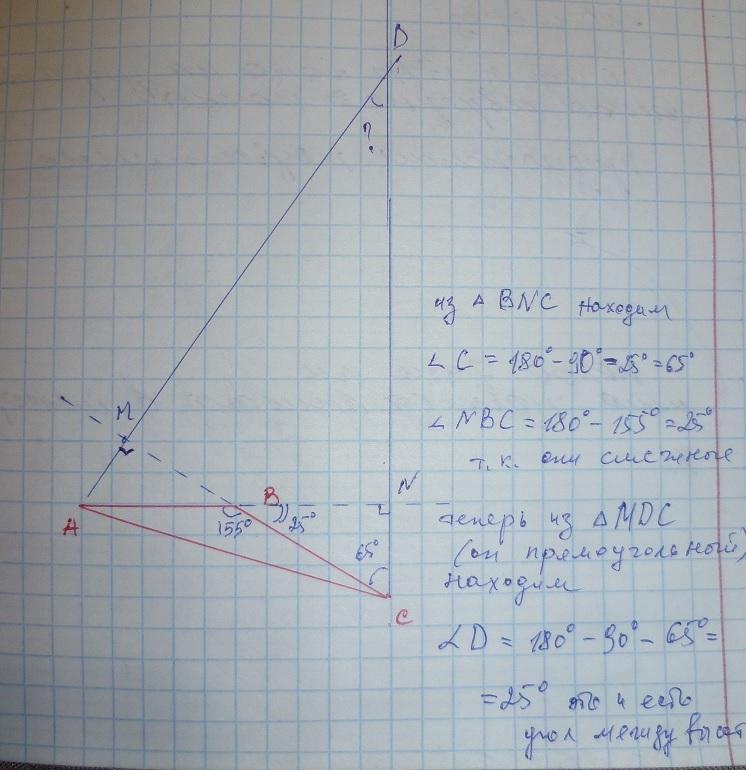 D
?
из △ BNC находим
∠ C = 180° - 90° - 25° = 65°
M
∠ NBC = 180° - 155° = 25°
т.к. они смежные
A
B
N
155°
25°
теперь из △MDC
(он прямоугольный)
65°
находим
C
∠D = 180° - 90° - 65° =
= 25° это и есть
угол между высот